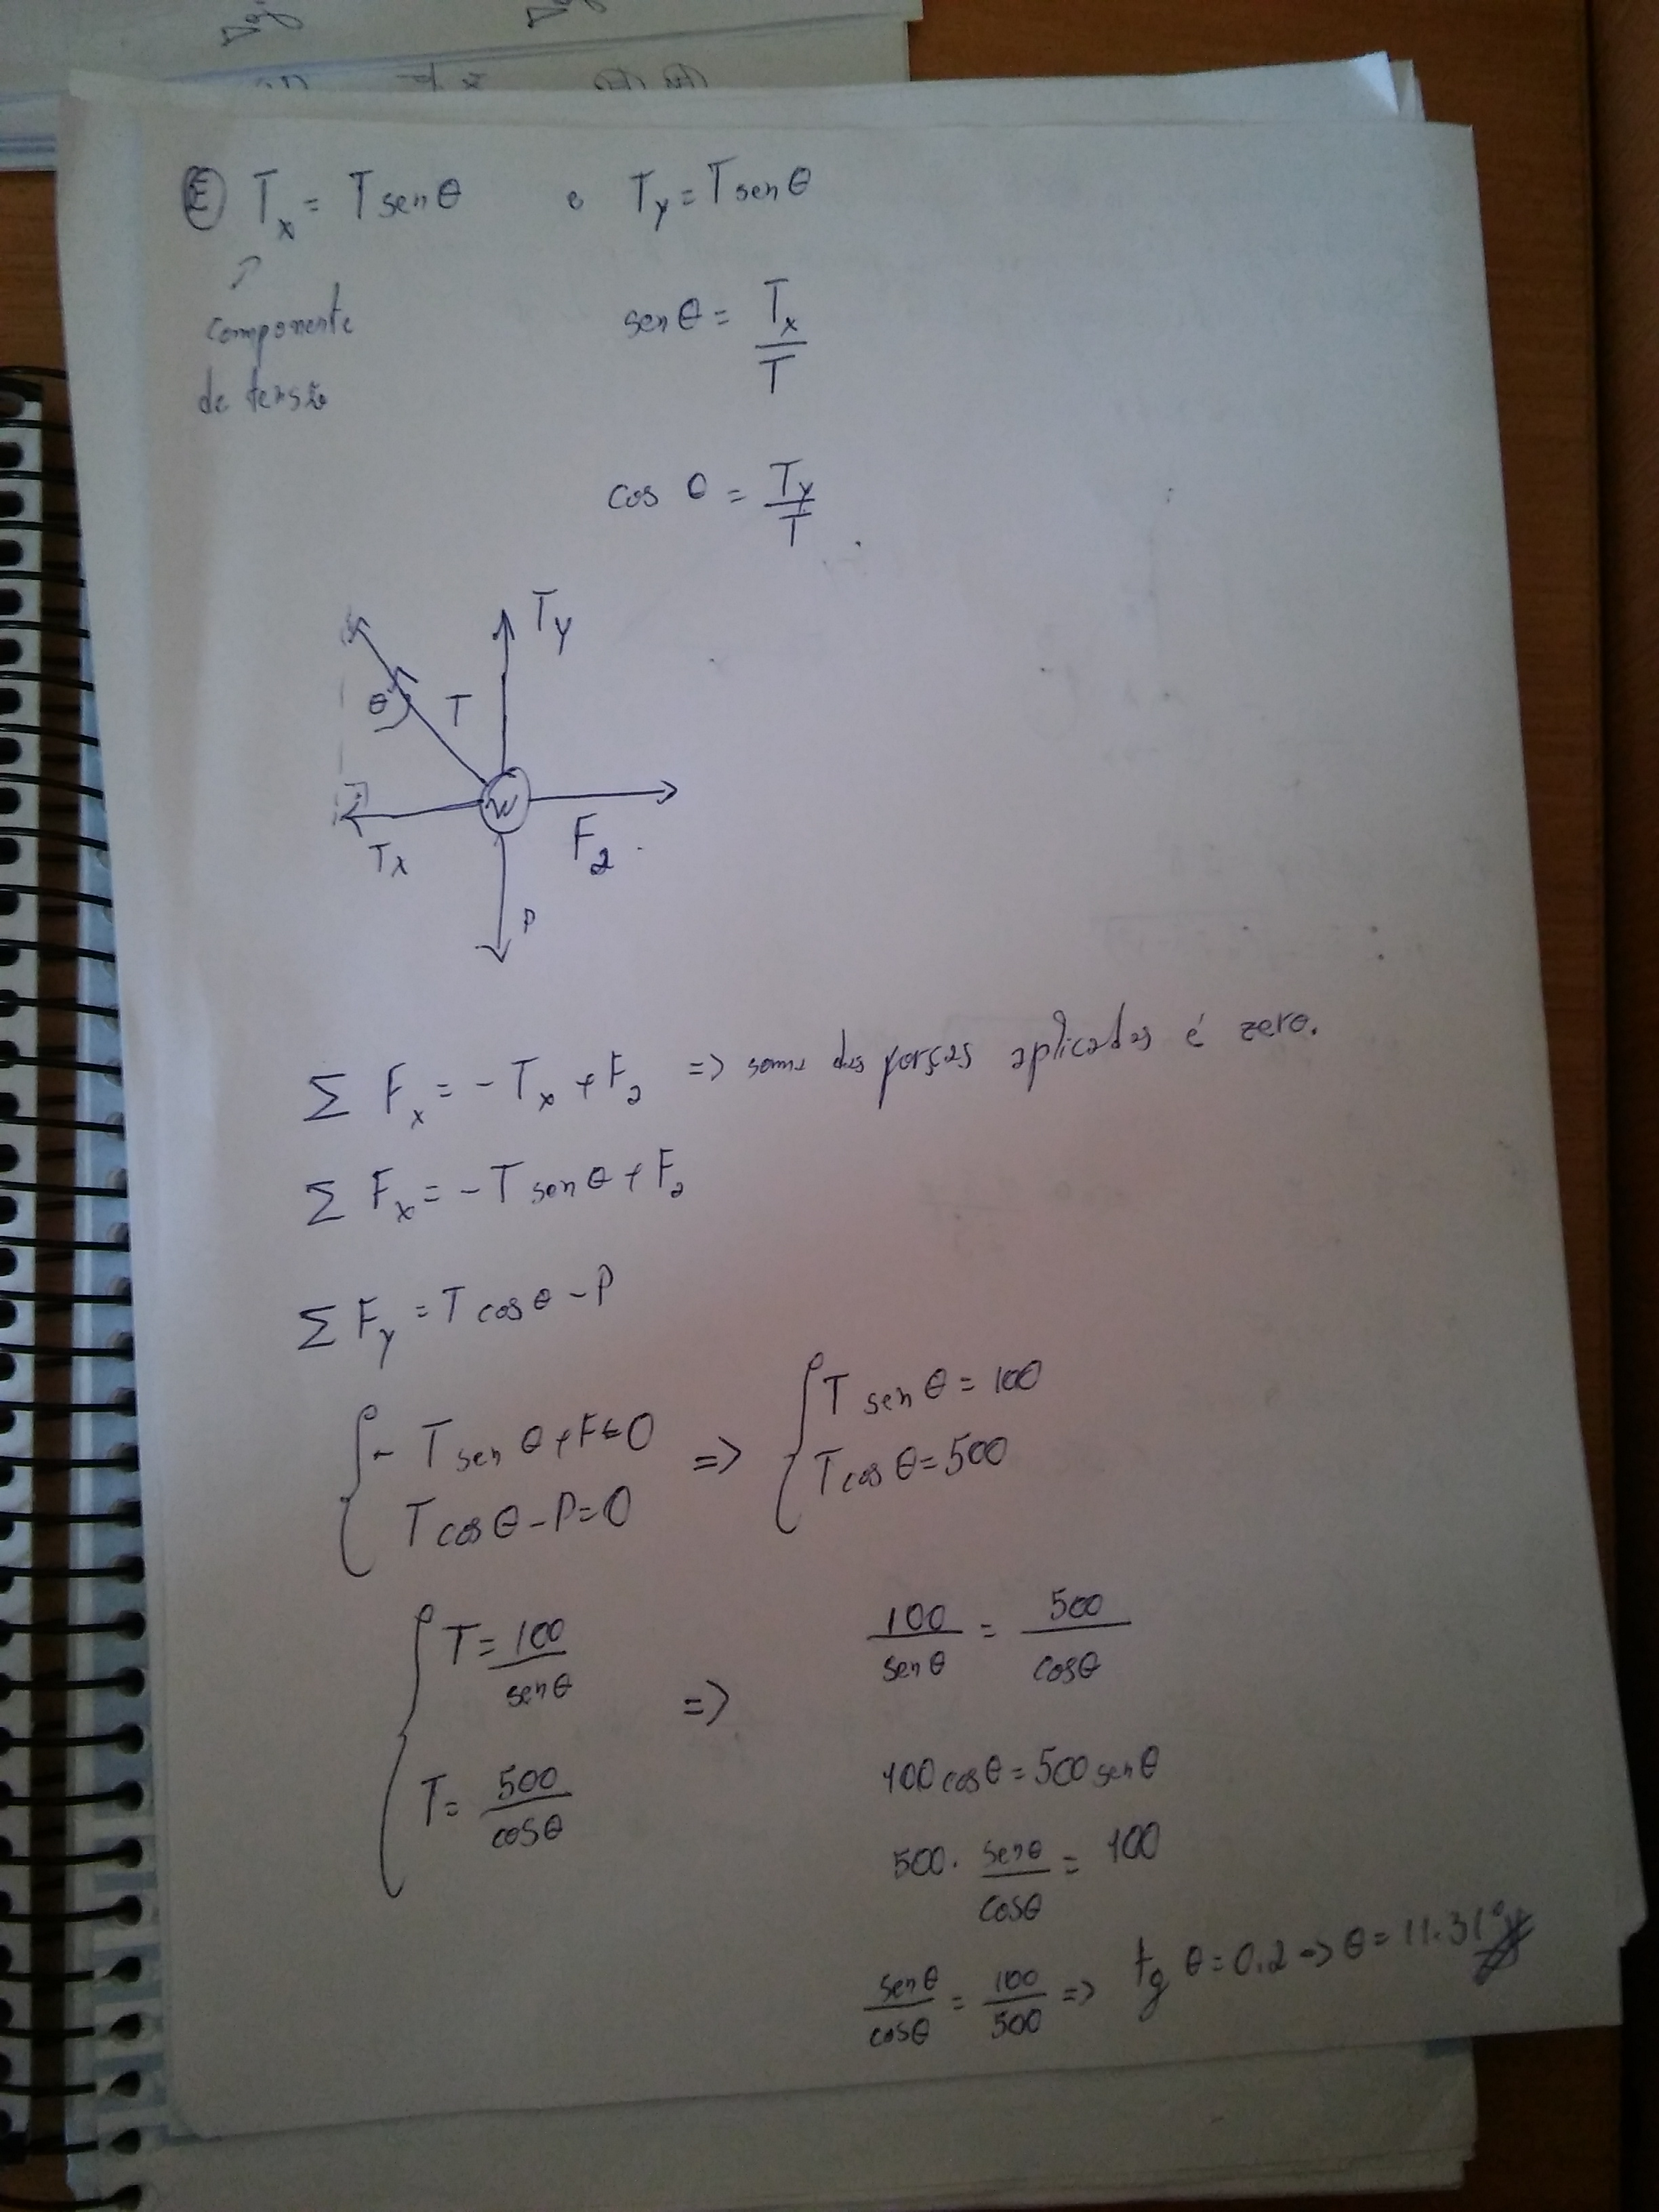 Ⓔ T_x = T sen θ e T_y = T sen θ
componente
de tensão
sen θ = T_x / T
cos θ = T_y / T
T_y
θ T
W
T_x F_2
P
Σ F_x = - T_x + F_2 => soma das forças aplicadas é zero.
Σ F_x = - T sen θ + F_2
Σ F_y = T cos θ - P
{ - T sen θ + F = 0 => { T sen θ = 100
T cos θ - P = 0 T cos θ = 500
{ T = 100 / sen θ => 100 / sen θ = 500 / cos θ
100 cos θ = 500 sen θ
T = 500 / cos θ
500 . sen θ / cos θ = 100
sen θ / cos θ = 100 / 500 => tg θ = 0.2 => θ = 11.31°